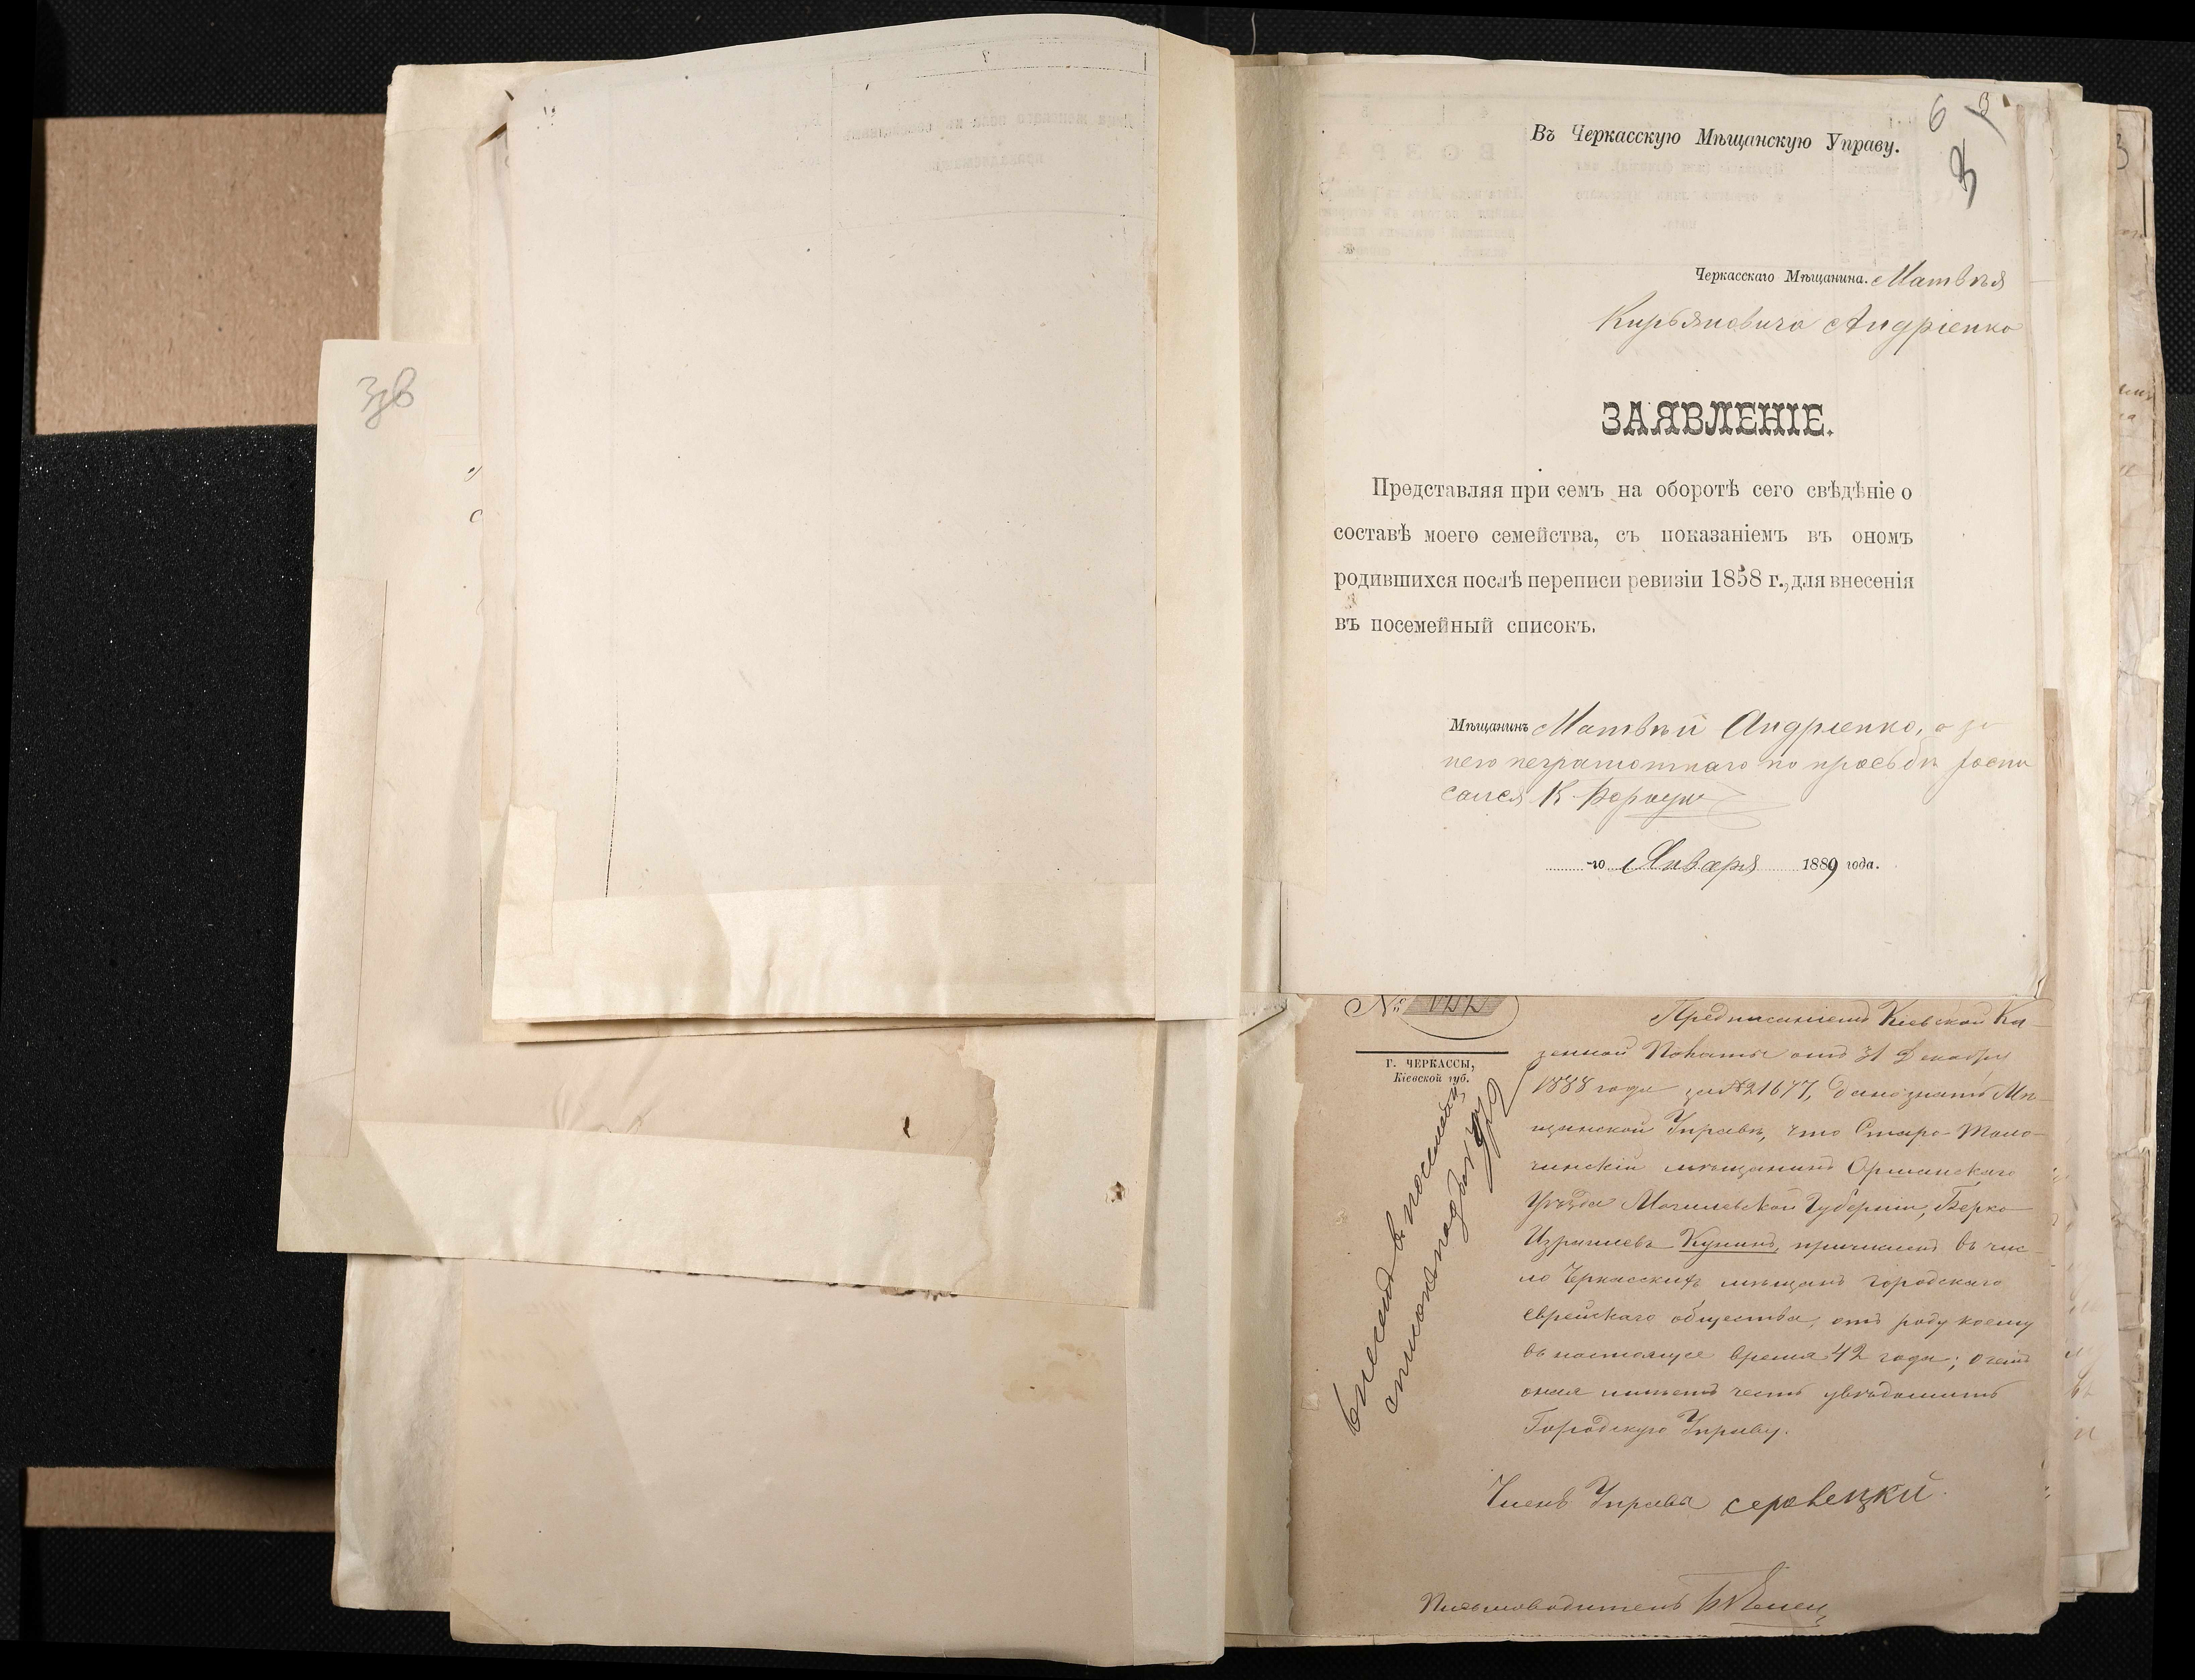 Ззв
6 3
3
Въ Черкасскую Мѣщанскую Управу.
Черкасскаго Мѣщанина. Матвѣя
Кирьяновича Андріенко
ЗАЯВЛЕНІЕ.
Представляя при семъ на оборотѣ сего свѣдѣніе о
составѣ моего семейства, съ показаніемъ въ ономъ
родившихся послѣ переписи ревизіи 1858 г., для внесенія
въ посемейный списокъ.
Мѣщанинъ Матвѣй Андріенко, а за
него неграмотнаго по просьбѣ роспи
сался К
-го Января 1889 года.
№
Г. ЧЕРКАССЫ,
Кіевской губ.
Предписаніемъ Кіевской Ка-
зенной Палаты отъ 31 Декабря
1888 года за № 21677, дано знать Мѣ-
щанской Управѣ, что Старо-Толо-
чинскій мѣщанинъ Оршанскаго
Уѣзда Могилевской Губерніи, Берко
Израилевъ Кунинъ, причисленъ въ чис-
ло Черкасскихъ мѣщанъ городскаго
еврейскаго общества, отъ роду коему
въ настоящее время 42 года; о чемъ
оная имѣетъ честь увѣдомить
Городскую Управу.
внесенъ въ посемейн
списокъ подъ №
Членъ Управы
Письмоводитель